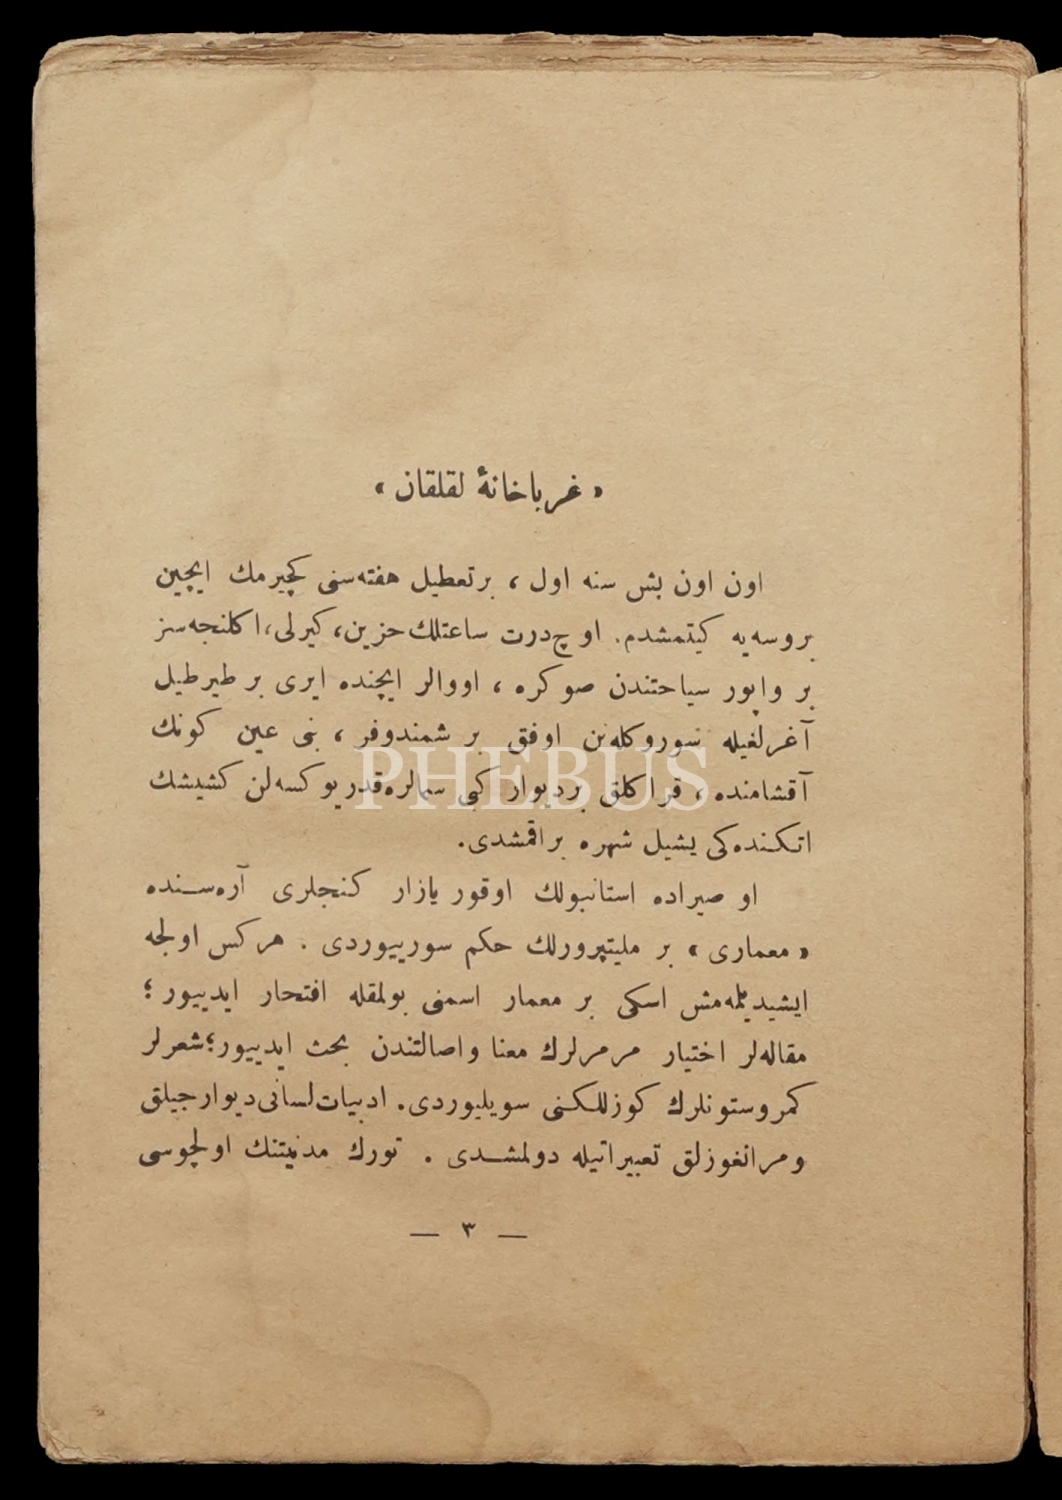 « غرباخانهٔ لقلقان »
اون اون بش سنه اول ، بر تعطيل هفته‌سنى كچيرمك ايچين
بروسه‌يه كيتمشدم. اوچ درت ساعتلك حزين، كيرلى، اكلنجه‌سز
بر واپور سياحتندن صوكره ، اووالر ايچنده ايرى بر طيرطيل
آغرلغيله سوروكله‌نن اوفق بر شمندوفر ، بنى عين كونك
آقشامنده ، قراكلق بر ديوار كبى سمالره قدر يوكسه‌لن كشيشك
اتكنده‌كى يشيل شهره براقمشدى.
او صيراده استانبولك اوقور يازار كنجلرى آره‌سنده
« معمارى » بر مليتپرورلك حكم سورييوردى . هركس اولجه
ايشيديلمه‌مش اسكى بر معمار اسمنى بولمقله افتحار ايدييور ؛
مقاله‌لر اختيار مرمرلرك معنا واصالتندن بحث ايدييور؛ شعرلر
كمر وستونلرك كوزللكنى سويليوردى. ادبيات لسانى ديوارجيلق
ومرانغوزلق تعبيراتيله دولمشدى . تورك مدنيتنك اولچوسى
— ٣ —
PHEBUS